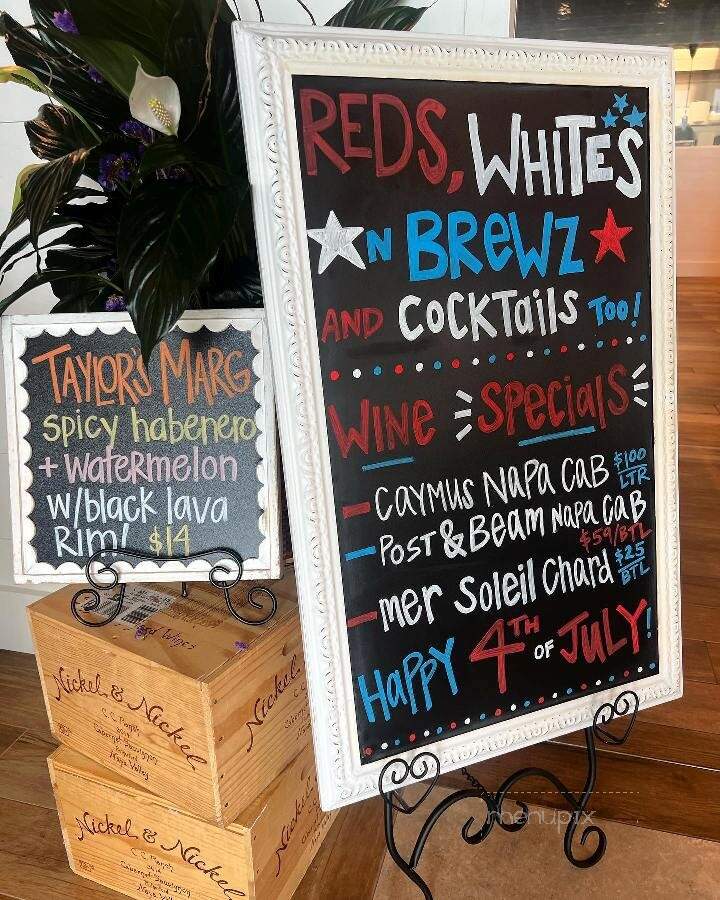 REDS, WHITES
N BREWZ
AND COCKTAILS TOO!
WINE SPECIALS
- CAYMUS NAPA CAB $100 LTR
- POST & BEAM NAPA CAB
$59/BTL
- mer Soleil Chard $25 BTL
HAPPY 4TH OF JULY!
TAYLOR'S MARG
spicy habenero
+ watermelon
w/black lava
Rim! $14
Nickel & Nickel
C.C. Ranch
Cabernet Sauvignon
Napa Valley
Nickel
Nickel & Nickel
C.C. Ranch
Cabernet Sauvignon
Napa Valley
Nickel
menupix